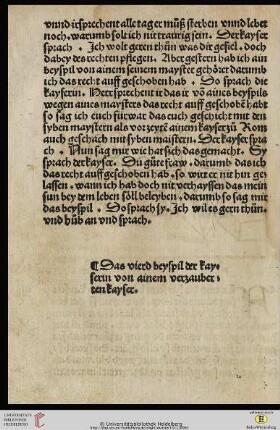 vnnd ir sprechent alle tag er müß sterben vnnd lebet
noch. warumb solt ich nit traurig sein. Der kayser
sprach. Ich wolt geren thůn was dir gefiel. doch
dabey des rechten pflegen. Aber gestern hab ich ain
beyspil von ainem seinem mayster gehöret darumb
ich das recht auff geschoben hab. Do sprach die
kayserin. Herr sprechent ir das ir vō aines beyspils
wegen aines maysters das recht auff geschobē habt
so sag ich euch fürwar das euch geschicht mit den
syben maystern als vor zeytē ainem kayser zů Rom
auch geschach mit syben maistern. Der kayser spra
ch. Nun sag mir wie hat sich das gemacht. Sy
sprach der kayser. Du gůte fraw. darumb das ich
das recht auffgeschoben hab. so wirt er nit hin ge
lassen. wann ich hab doch nit verhayssen das mein
sun bey dem leben söll beleyben. darumb so sag mir
das beyspil. Do sprach sy. Ich wil es gern thůn.
vnd hůb an vnd sprach.
¶ Das vierd beyspil der kay-
serin von ainem verzauber-
ten kayser.
UNIVERSITÄTS-
BIBLIOTHEK
HEIDELBERG
© Universitätsbibliothek Heidelberg